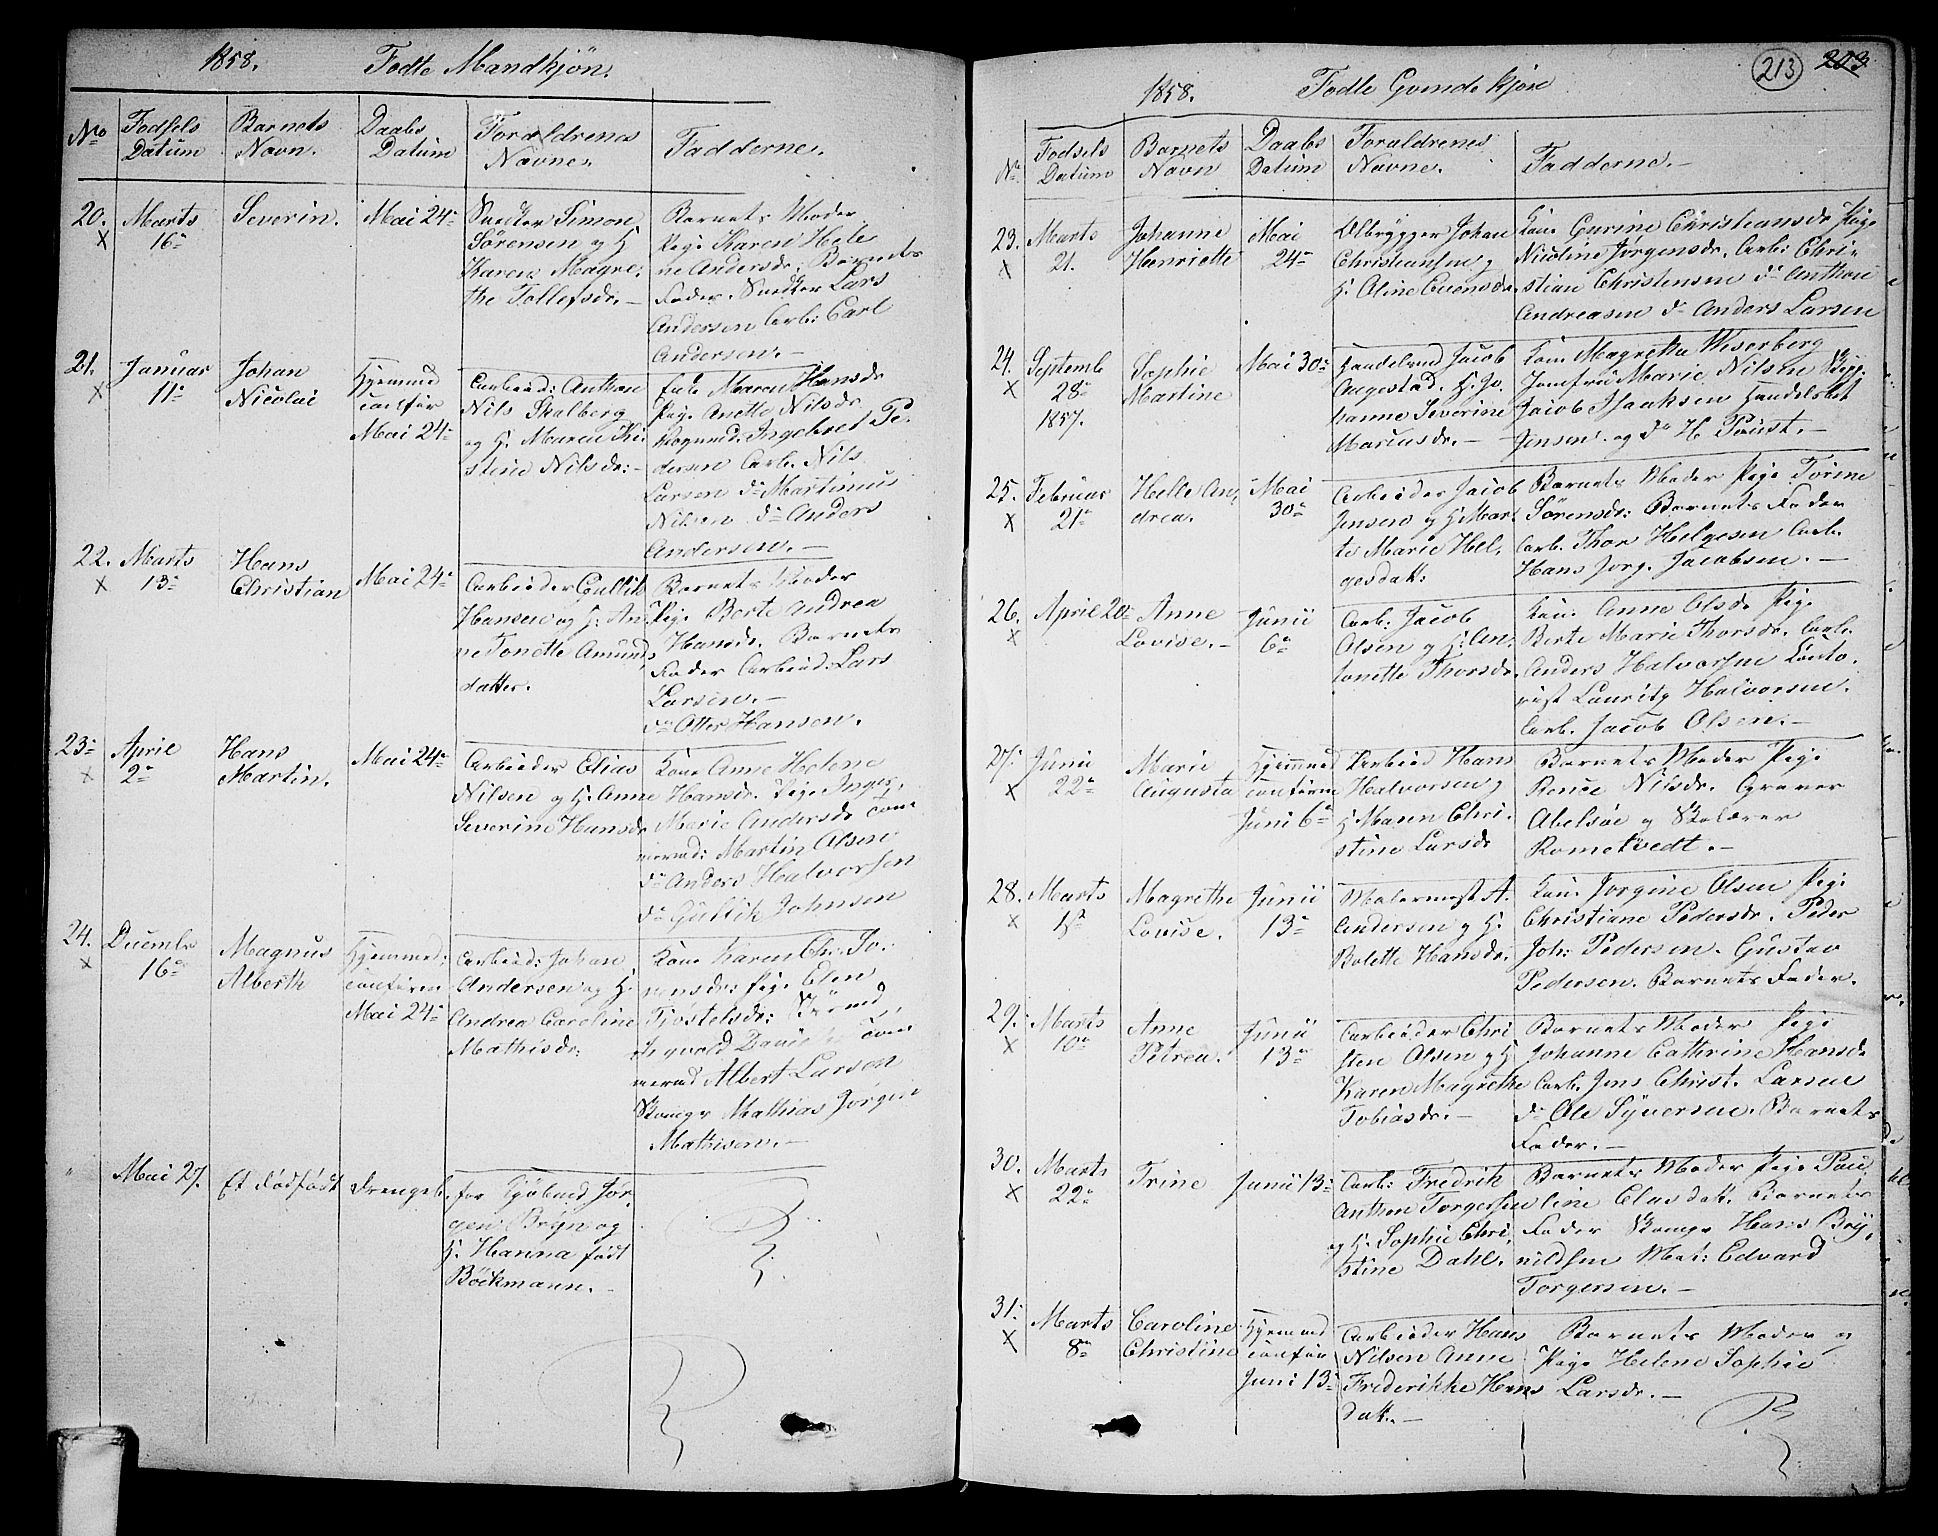 1858.
Fødte Mandkjøn.
No
Fødsels Datum
Barnets Navn.
Daabs Datum
Forældrenes Navne.
Fadderne.
20. Marts 16de
Severin.
Mai 24de
Snedker Simon
Sörensen og H.
Karen Magre,
the Tollefsdr.
Barnets Moder
Pige Karen Hele
ne Andersdr. Barnets
Fader. Snedker Lars
Andersen Arb: Carl
Andersen.
21. Januar 11te
Johan
Nicolai
Hjemmed
confir
Mai 24de
Arbeid: Anthon
Nils Skalberg
og H. Maren Ki
stine Nilsdr:
Enke Maren Hansdr
Pige Anette Nilsdr
Ingebret Pe,
dersen Arb. Nils
Larsen do Martinius
Nilsen do Anders
Andersen.
22. Marts 13de
Hans
Christian
Mai 24de
Arbeider Gullik
Hansen og H: An,
ne Tonette Amunds
datter.
Barnets Moder
Pige Berte Andrea
Hansdr. Barnets
Fader Arbeid: Lars
Larsen.
do Otter Hansen.
23de April 2de
Hans
Martin.
Mai 24de
Arbeider Elias
Nilsen og H. Anne
Severine Hansdr
Kone Anne Helene
Hansdr. Pige Inger,
Marie Andersdr Tøm
mermd: Martin Olsen
do Anders Halvorsen
do Gullik Johnsen
24. Decembr 16de
Magnus
Alberth
Hjemmed:
confirm
Mai 24de
Arbeid: Johan
Andersen og H.
Andrea Caroline
Mathisdr
Kone Karen Chr. Jo,
nensdr: Pige Elen
Tjostelsdr:
Tøm
mermd Albert Larsen
Skomgr Mathias Jörgen
Mathisen.
Mai 27.
Et dødfødt
Drengeb.
for Jör
gen Bryn og
H. Hanna født
Böckmann.
213 203
1858.
Fødte Qvindekjøn
No
Fødsels Datum
Barnets Navn
Daabs Datum
Forældrenes Navne.
Fadderne.
23. Marts 21.
Johanne
Henriette
Mai
24de
Ølbrygger Johan
Christiansen og
H. Oline Evensdr.
Kone Gurine Christiansdr Pige
Nicoline Jörgensdr. Arb: Chri-
stian Christensen do Anthon
Andreasen do Anders Larsen
24. Septemb
28de
1857.
Sophie
Martine
Mai 30de
Handelsmd Jacob
Augestad. H. Jo,
hanne Severine
Mariusdr.
Kone Magrethe Wiserberg
Jomfru Marie Nilsen
Jacob Isaksen Handelsbet
Jensen. og do H. Paust.
25. Februar
21de
Helle An,
drea.
Mai
30de
Arbeider Jacob
Jensen og H. Mar,
te Marie Hel,
gesdatt:
Barnets Moder Pige Torine
Sørensdr: Barnets Fader
Arb. Thor Helgesen Arb.
Hans Jorg. Jacobsen.
26. April 20de
Anne
Lovise.
Junii
6de
Arb: Jacob
Olsen og H: An,
tonette Thorsdr.
Kone Anne Olsdr Pige
Berte Marie Thorsdr. Arb.
Anders Halvorsen Konto,
rist Lauritz Halvorsen.
Arb. Jacob Olsen.
27. Junii
22de
Marie
Augusta
Hjemmed
confirm
Juni 6de
Arbeid Hans
Halvorsen og
H Maren Chri,
stine Larsdr
Barnets Moder Pige
Nilsdr. Graver
Abelsöe og Skolærer
Rometvedt.
28. Marts
1ste
Magrethe
Lovise.
Junii
13de
Malermest A.
Andersen og H.
Bolette Hansdr.
Kone Jorgine Olsen Pige
Christiane Pedersdr. Peder
Joh: Pedersen. Gustav
Pedersen. Barnets Fader.
29. Marts
10de
Anne
Petrea.
Junii
13de
Arbeider Chri
sten Olsen og H
Karen Magrethe
Tobiasdr.
Barnets Moder Pige
Johanne Cathrine Hansdr
Arb. Jens Christ. Larsen
do Ole Syversen. Barnets
Fader.
30. Marts
22de
Trine
Junii 13de
Arb: Fredrik
Anthon Torgersen
og H. Sophie Chri,
stine Dahl.
Barnets Moder Pige Pau
line Elias datt. Barnets
Fader Skomgr Hans Bry,
nildsen Mat: Edvard
Torgersen.
31. Marts
8de
Caroline
Christine
Hjemmed
confir
Juni 13de
Arbeider Hans
Nilsen Anne
Frederikke Hans
datt.
Barnets Moder og
Pige Helene Sophie
Larsdr.